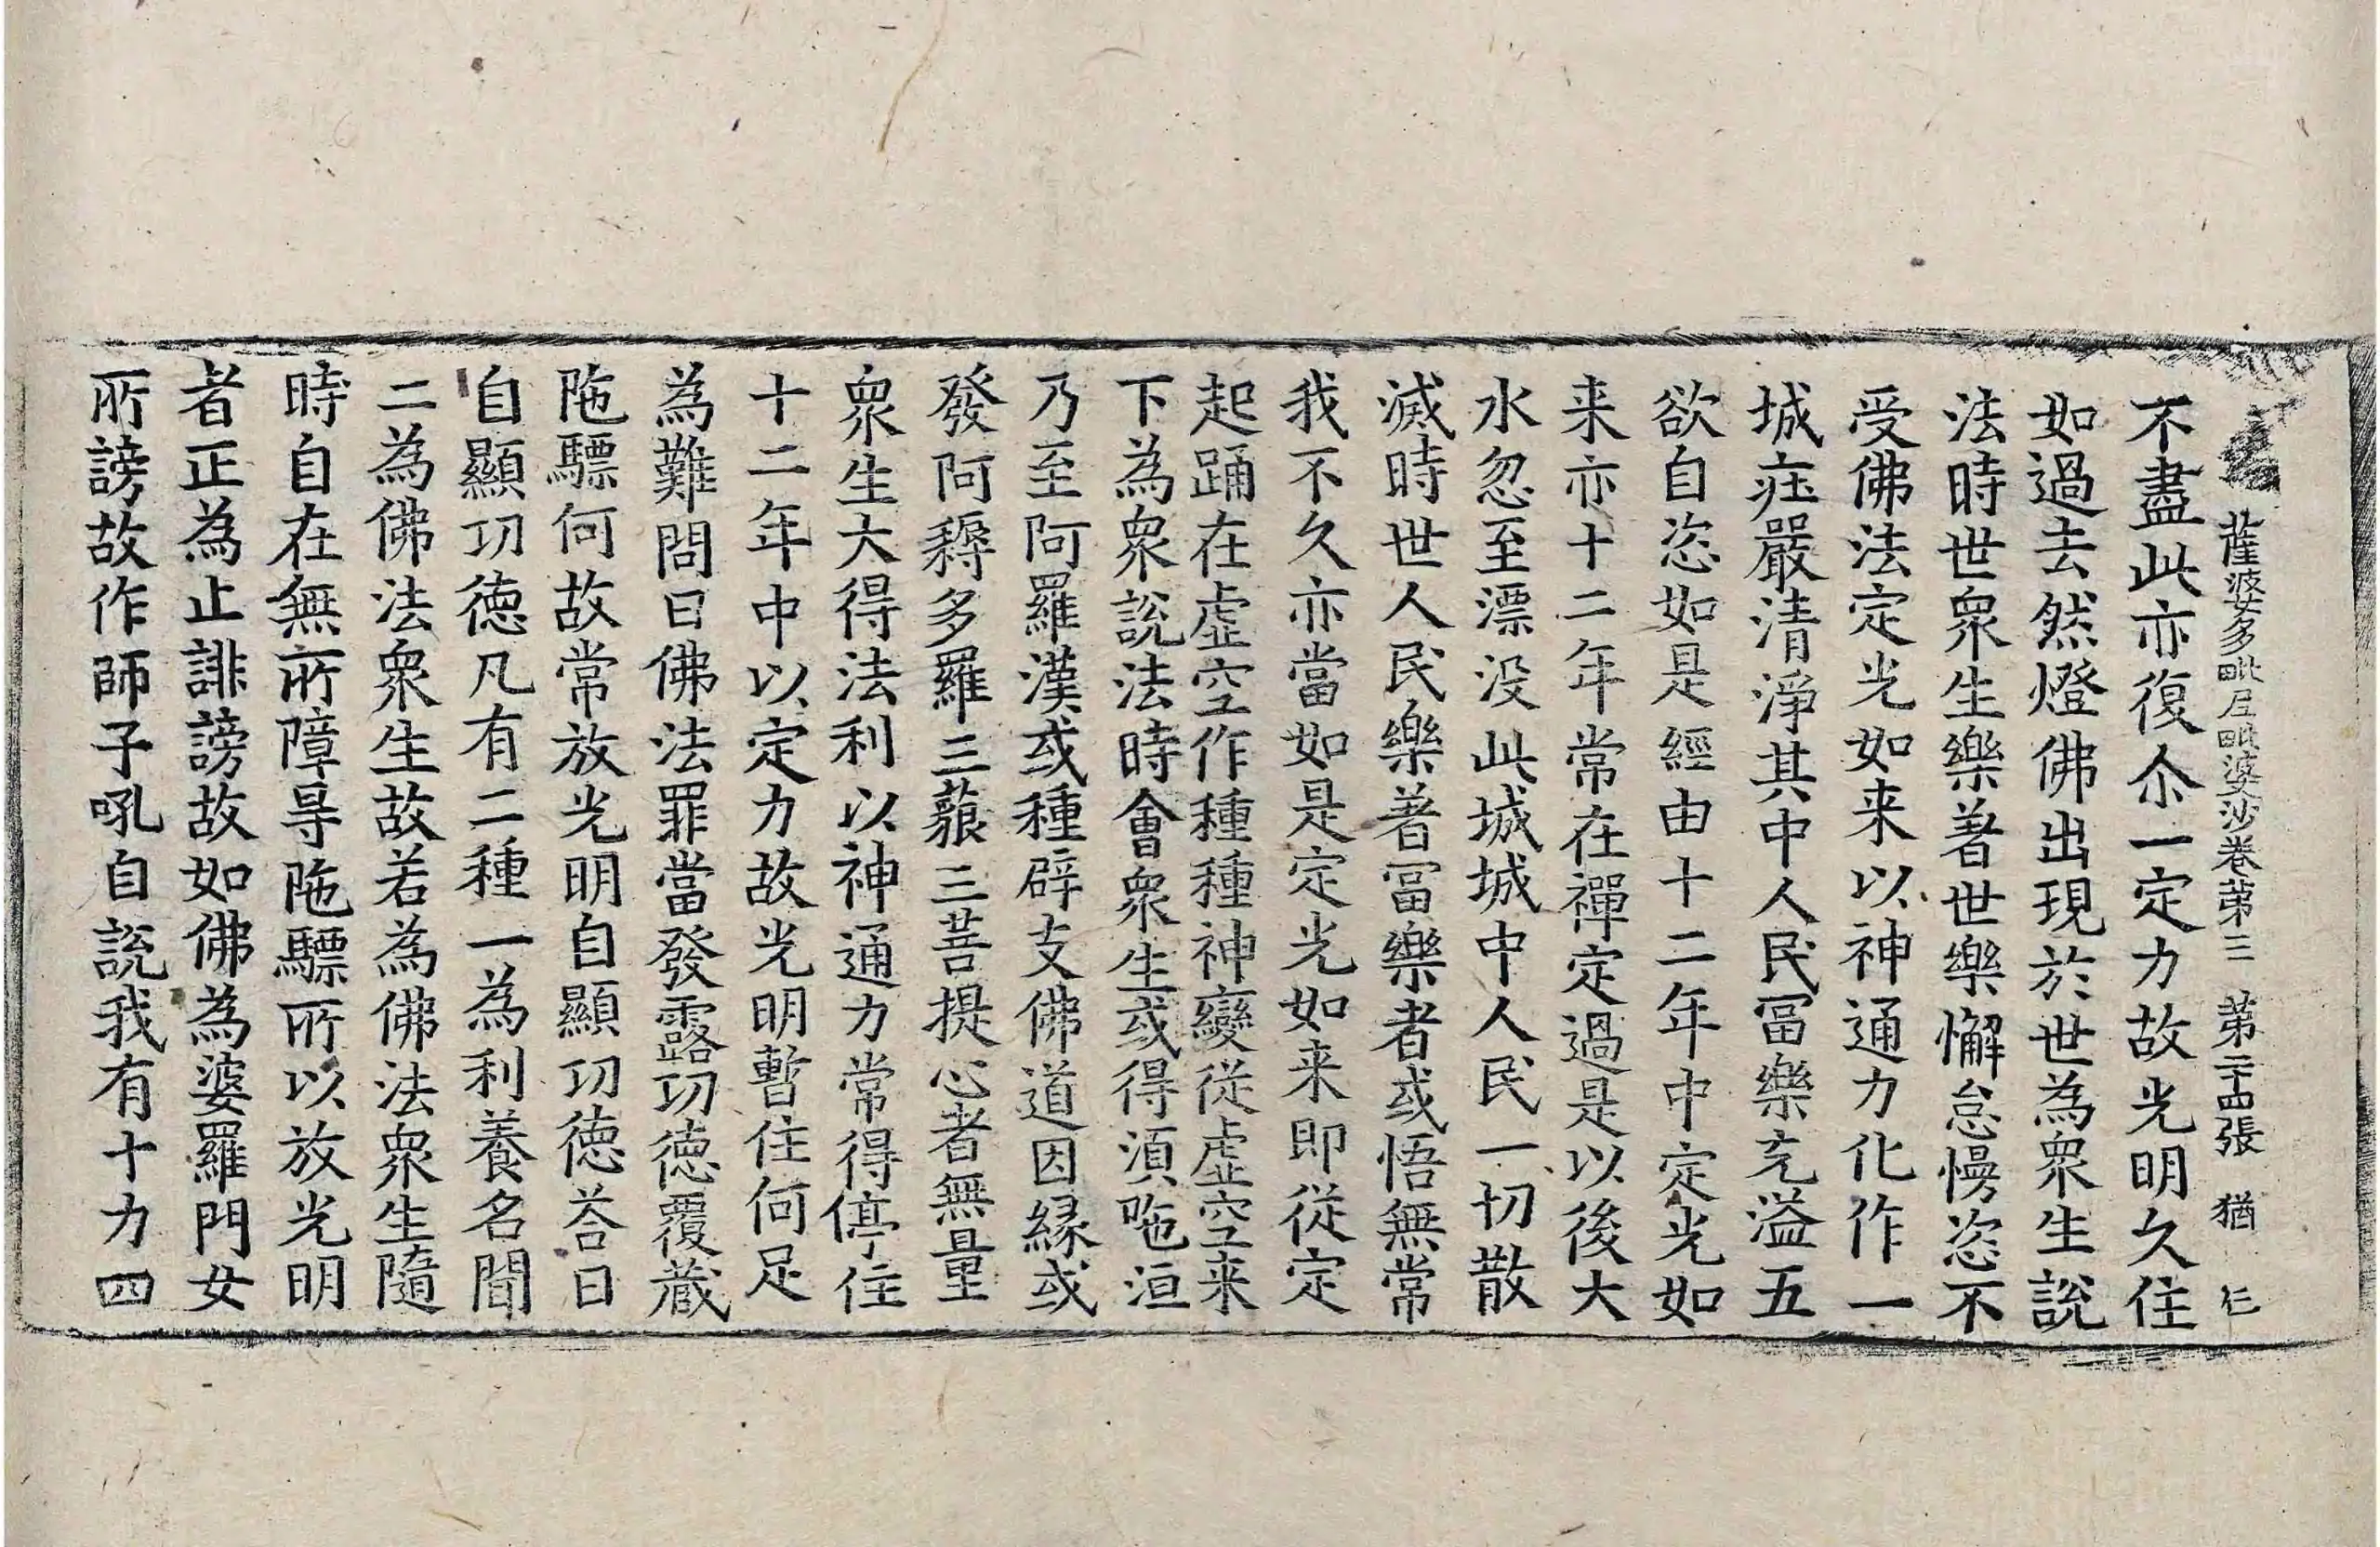 薩婆多毗尼毗婆沙卷第三 第二十四張 猶 仁
不盡此亦復尒一定力故光明久住
如過去然燈佛出現於世為衆生說
法時世衆生樂著世樂懈怠慢恣不
受佛法定光如来以神通力化作一
城㽵嚴清淨其中人民冨樂充溢五
欲自恣如是經由十二年中定光如
来亦十二年常在禪定過是以後大
水忽至漂没此城城中人民一切散
滅時世人民樂著冨樂者或悟無常
我不久亦當如是定光如来即從定
起踊在虛空作種種神變從虛空来
下為衆說法時會衆生或得湏陁洹
乃至阿羅漢或種辟支佛道因縁或
發阿耨多羅三藐三菩提心者無量
衆生大得法利以神通力常得停住
十二年中以定力故光明暫住何足
為難問曰佛法罪當發露功徳覆蔵
陁驃何故常放光明自顯功徳荅曰
自顯功徳凡有二種一為利養名聞
二為佛法衆生故若為佛法衆生隨
時自在無所障㝵陁驃所以放光明
者正為止誹謗故如佛為婆羅門女
所謗故作師子吼自說我有十力四